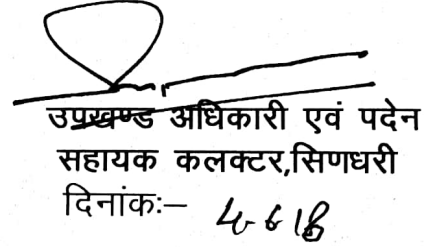 उपखण्ड अधिकारी एवं पदेन
सहायक कलक्टर,सिणधरी
दिनांकः– 4-6-18